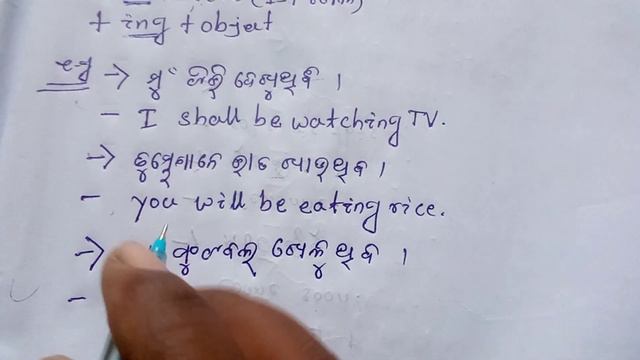 + ing + object
eg → ମୁଁ ଟିଭି ଦେଖୁଥିବି ।
- I shall be watching TV.
→ ତୁମ୍ଭେମାନେ ଭାତ ଖାଉଥିବ ।
- you will be eating rice.
→ ଫୁଟବଲ୍ ଖେଳୁଥିବ ।
-